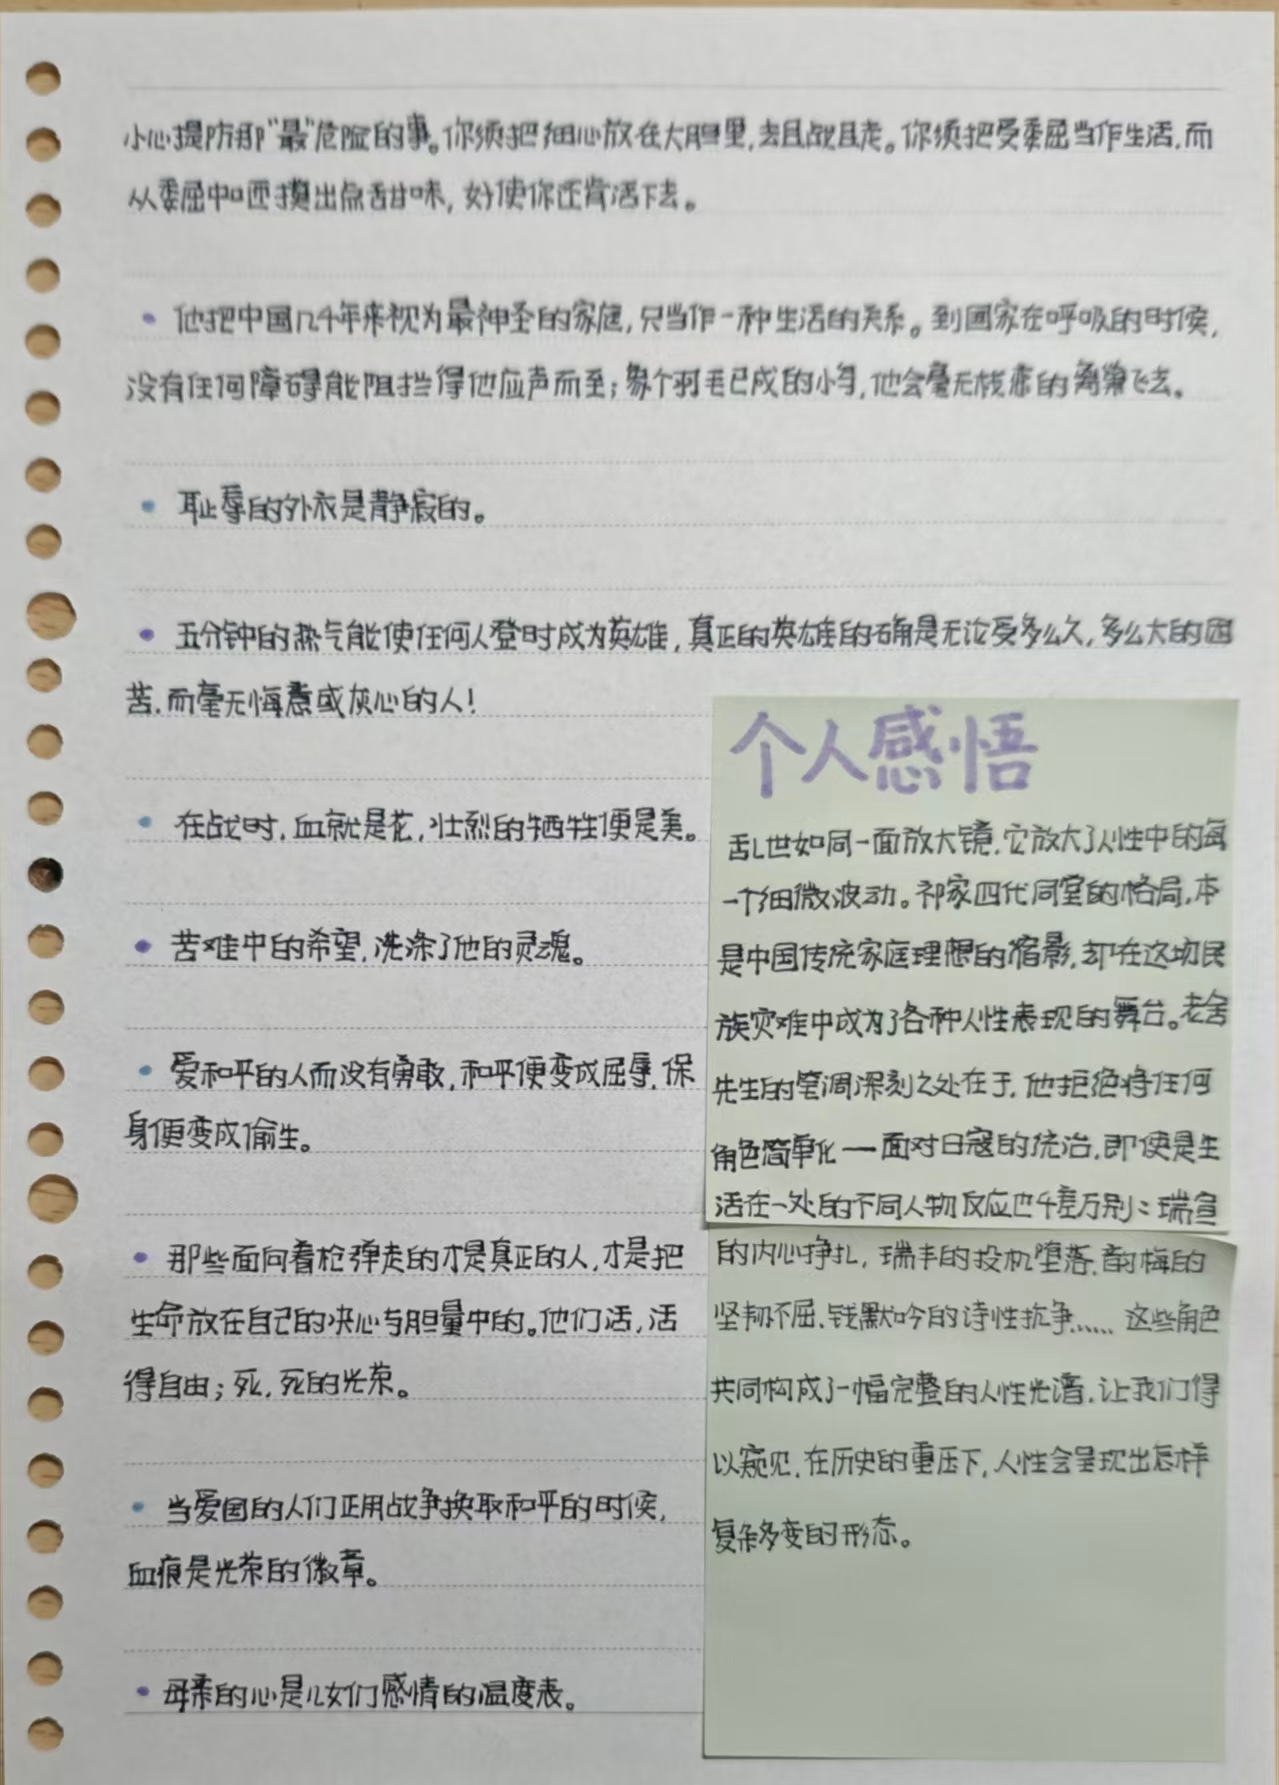 小心提防那“最”危险的事。你须把细心放在大胆里，去且战且走。你须把受委屈当作生活，而
从委屈中咂摸出点甜味，好使你还肯活下去。
• 他把中国几千年来视为最神圣的家庭，只当作一种生活的关系。到国家在呼吸的时候，
没有任何障碍能阻挡得他应声而至；象个羽毛已成的小鸟，他会毫无栈恋的离巢飞去。
• 耻辱的外衣是静寂的。
• 五分钟的热气能使任何人登时成为英雄，真正的英雄的确是无论受多么久，多么大的困
苦，而毫无悔意或灰心的人！
• 在战时，血就是花，壮烈的牺牲便是美。
• 苦难中的希望，洗涤了他的灵魂。
• 爱和平的人而没有勇敢，和平便变成屈辱，保
身便变成偷生。
• 那些面向着枪弹走的才是真正的人，才是把
生命放在自己的决心与胆量中的。他们活，活
得自由；死，死的光荣。
• 当爱国的人们正用战争换取和平的时候，
血痕是光荣的徽章。
• 母亲的心是儿女们感情的温度表。
个人感悟
乱世如同一面放大镜，它放大了人性中的每
一个细微波动。祁家四代同堂的格局，本
是中国传统家庭理想的缩影，却在这场民
族灾难中成为了各种人性表现的舞台。老舍
先生的笔调深刻之处在于，他拒绝将任何
角色简单化——面对日寇的统治，即使是生
活在一处的不同人物反应也千差万别：瑞宣
的内心挣扎，瑞丰的投机堕落，韵梅的
坚韧不屈，钱默吟的诗性抗争……这些角色
共同构成了一幅完整的人性光谱，让我们得
以窥见，在历史的重压下，人性会呈现出怎样
复杂多变的形态。